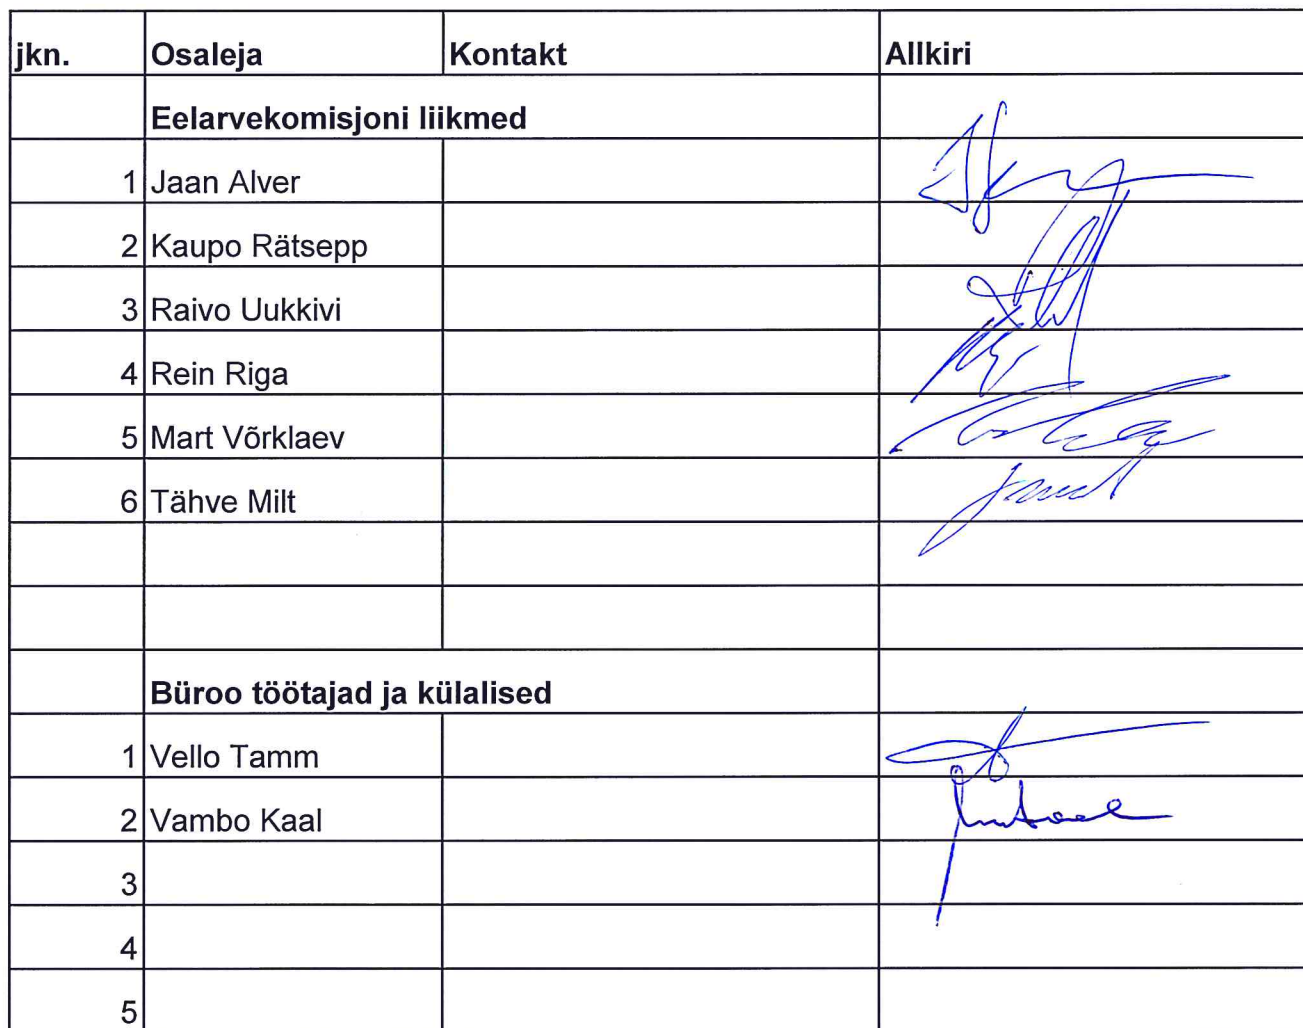 jkn. Osaleja Kontakt Allkiri
Eelarvekomisjoni liikmed
1 Jaan Alver
2 Kaupo Rätsepp
3 Raivo Uukkivi
4 Rein Riga
5 Mart Võrklaev
6 Tähve Milt
Büroo töötajad ja külalised
1 Vello Tamm
2 Vambo Kaal
3
4
5